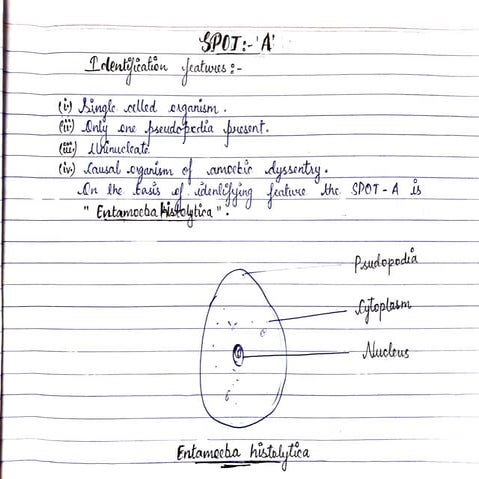 SPOT:-'A'
Identification features:-
(i) Single celled organism.
(ii) Only one pseudopodia present.
(iii) Uninucleate
(iv) Causal organism of amoebic dyssentry.
On the basis of identifying feature the SPOT-A is
"Entamoeba histolytica".
Psudopodia
Cytoplasm
Nucleus
Entamoeba histolytica